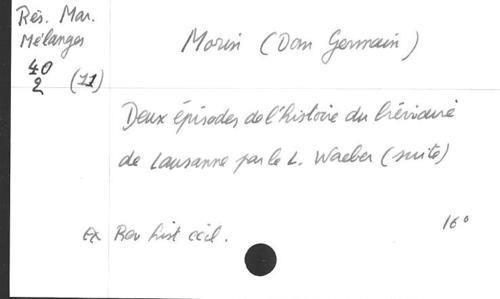 Rés. Mar.
Mélanges
40
2 (11)
Morin (Dom Germain)
Deux épisodes de l'histoire du bréviaire
de Lausanne par le L. Waeber (suite)
ex Rev hist eccl.
16°